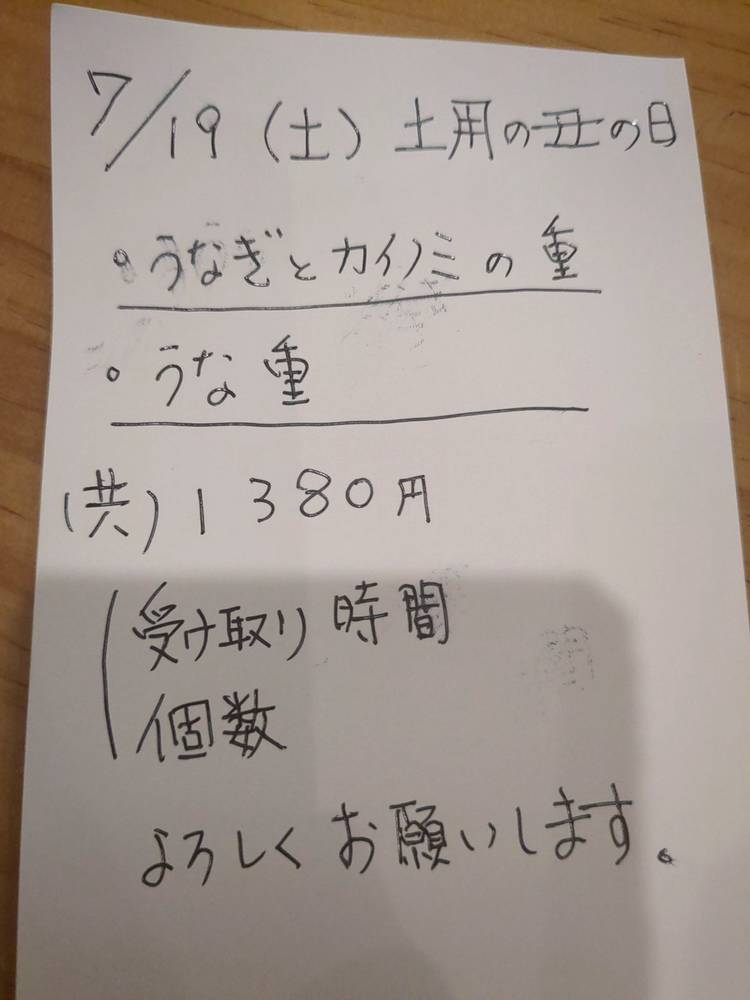 7/19(土) 土用の丑の日
・うなぎとカイノミの重
・うな重
(共)1380円
受け取り時間
個数
よろしくお願いします。